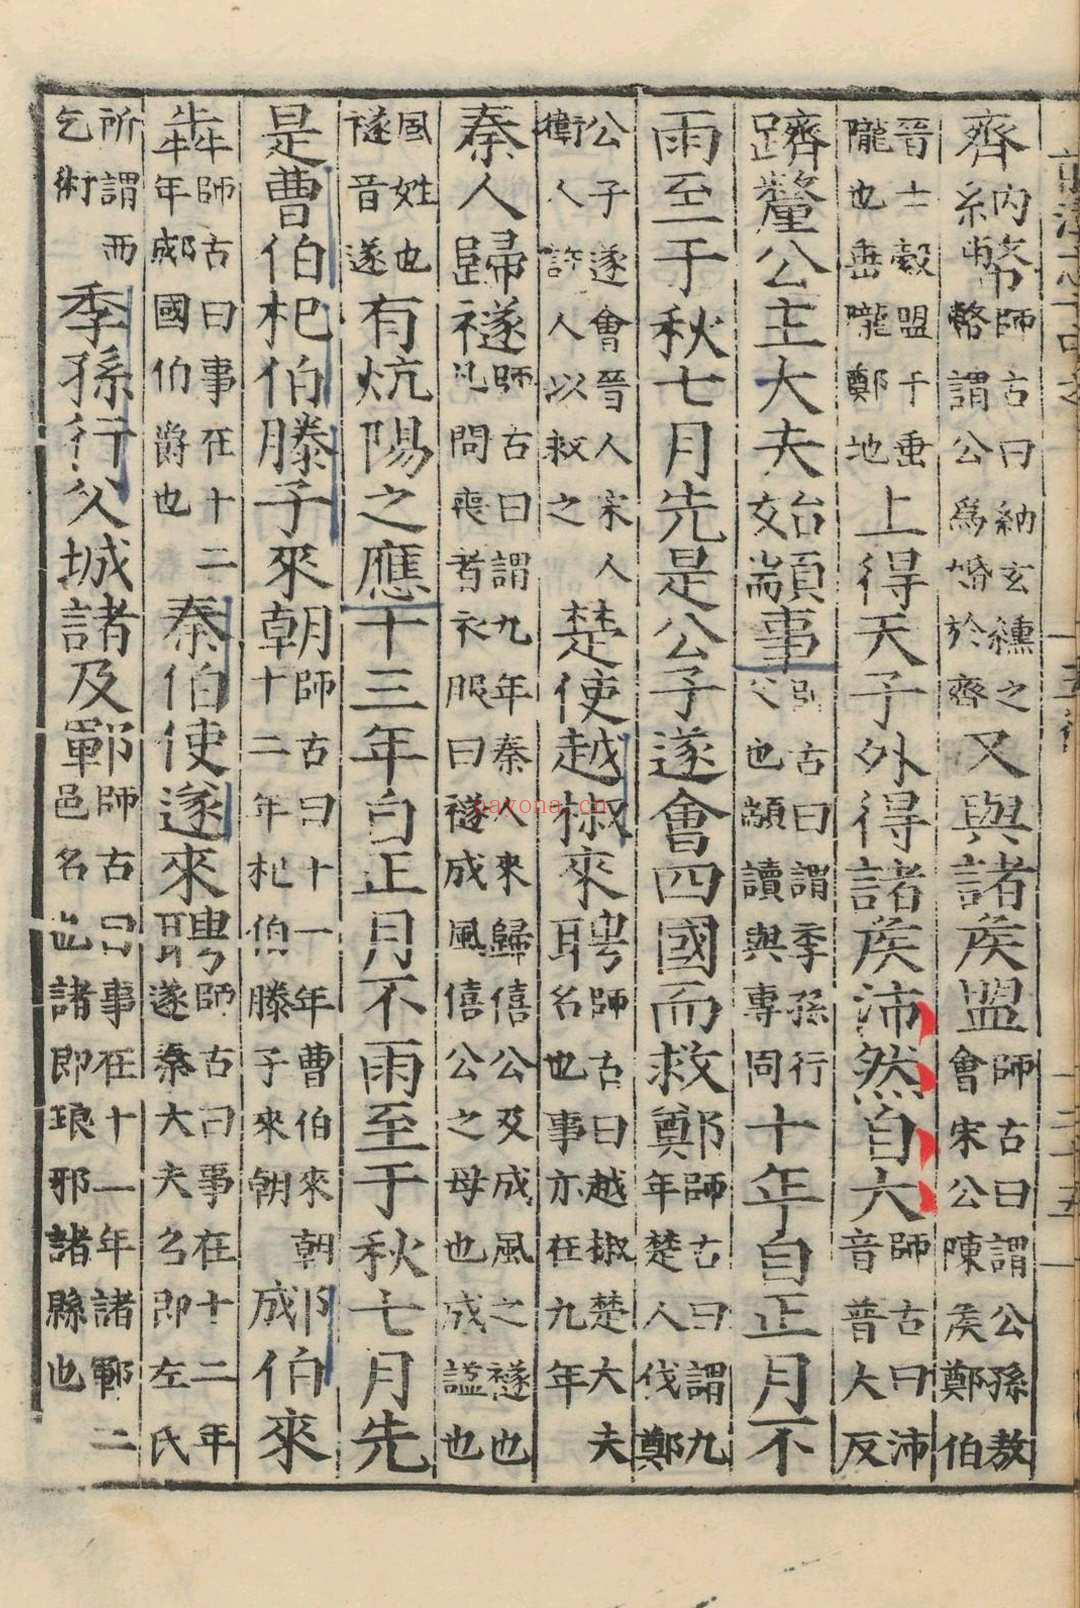 齊納幣師古曰納玄纁之幣謂公爲婚於齊又與諸侯盟師古曰謂公孫敖會宋公陳侯鄭伯
晉士縠盟于垂隴也垂隴鄭地上得天子外得諸侯沛然自大師古曰沛音普大反
躋釐公主大夫始顓事師古曰謂季孫行父也顓讀與專同十年自正月不
雨至于秋七月先是公子遂會四國而救鄭師古曰謂九年楚人伐鄭
公子遂會晉人宋人衞人許人以救之楚使越椒來聘師古曰越椒楚大夫名也事亦在九年
秦人歸襚師古曰謂九年秦人來歸僖公及成風之襚也凡問喪者衣服曰襚成風僖公之母也成謚也
風姓也襚音遂有炕陽之應十三年自正月不雨至于秋七月先
是曹伯杞伯滕子來朝師古曰十一年曹伯來朝十二年杞伯滕子來朝郕伯來
犇師古曰事在十二年郕國伯爵也秦伯使遂來聘師古曰事在十二年遂秦大夫名即左氏
所謂西乞術季孫行父城諸及鄆師古曰事在十一年諸鄆二邑名也諸即琅邪諸縣也
nayona.cn